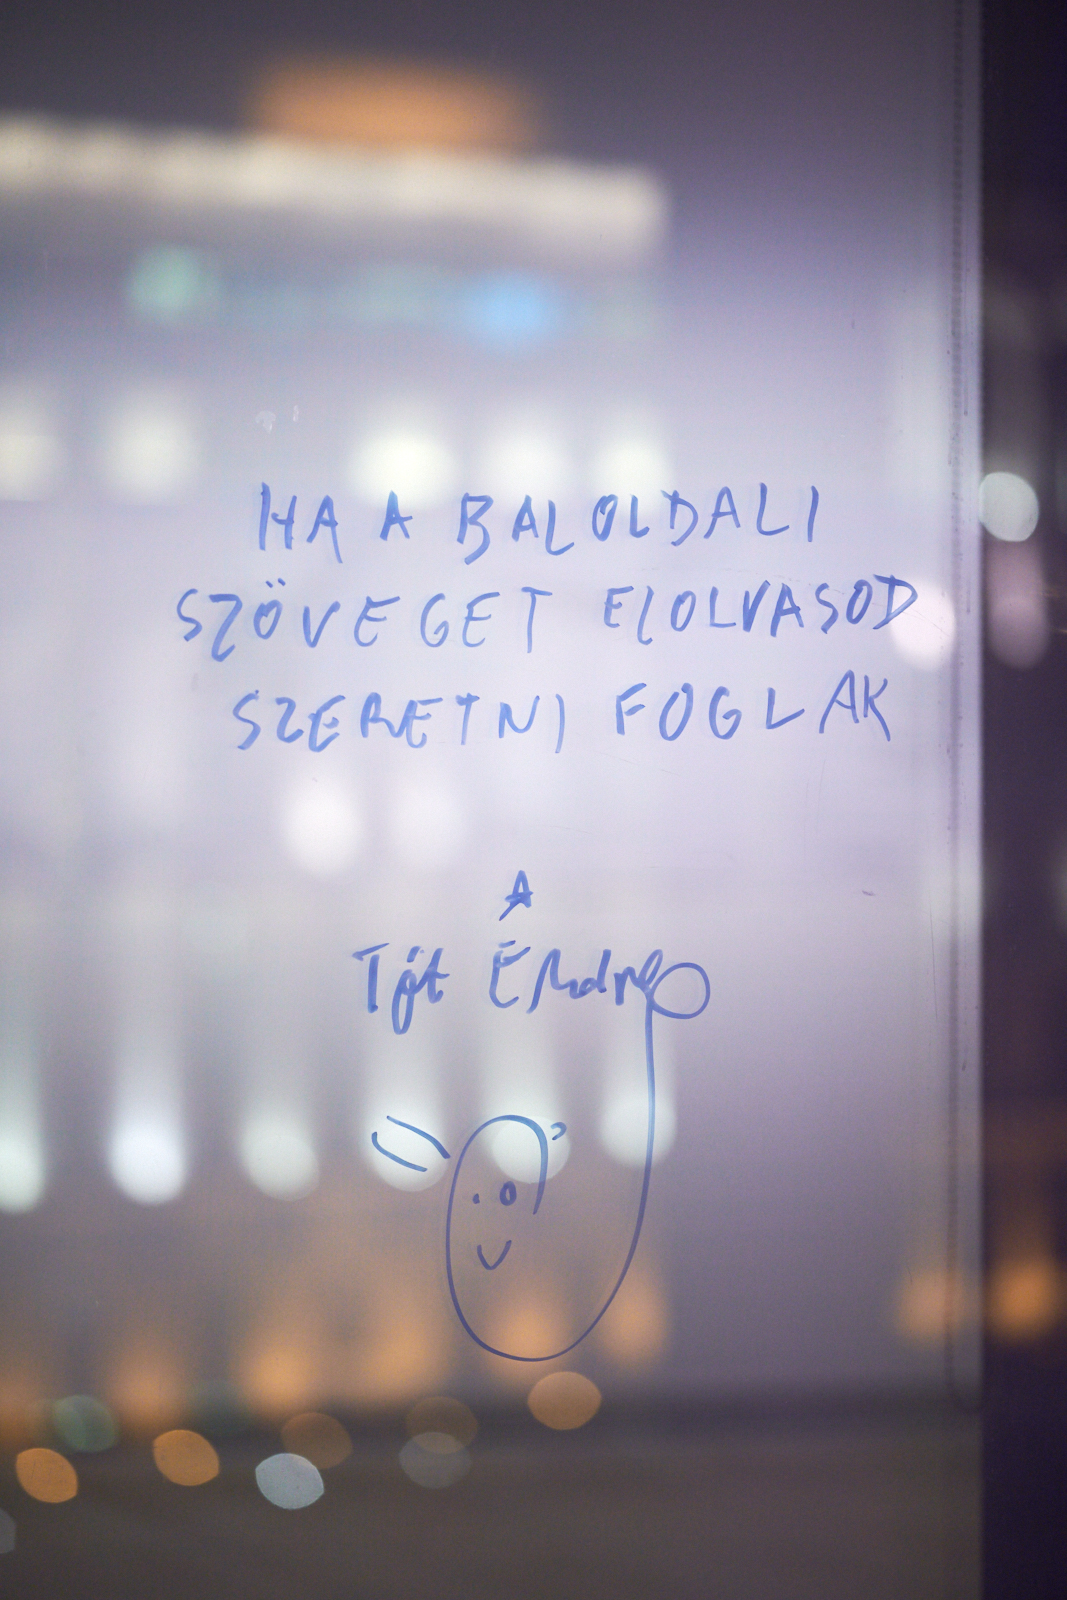 HA A BALOLDALI
SZÖVEGET ELOLVASOD
SZERETNI FOGLAK
A
Tót Endre